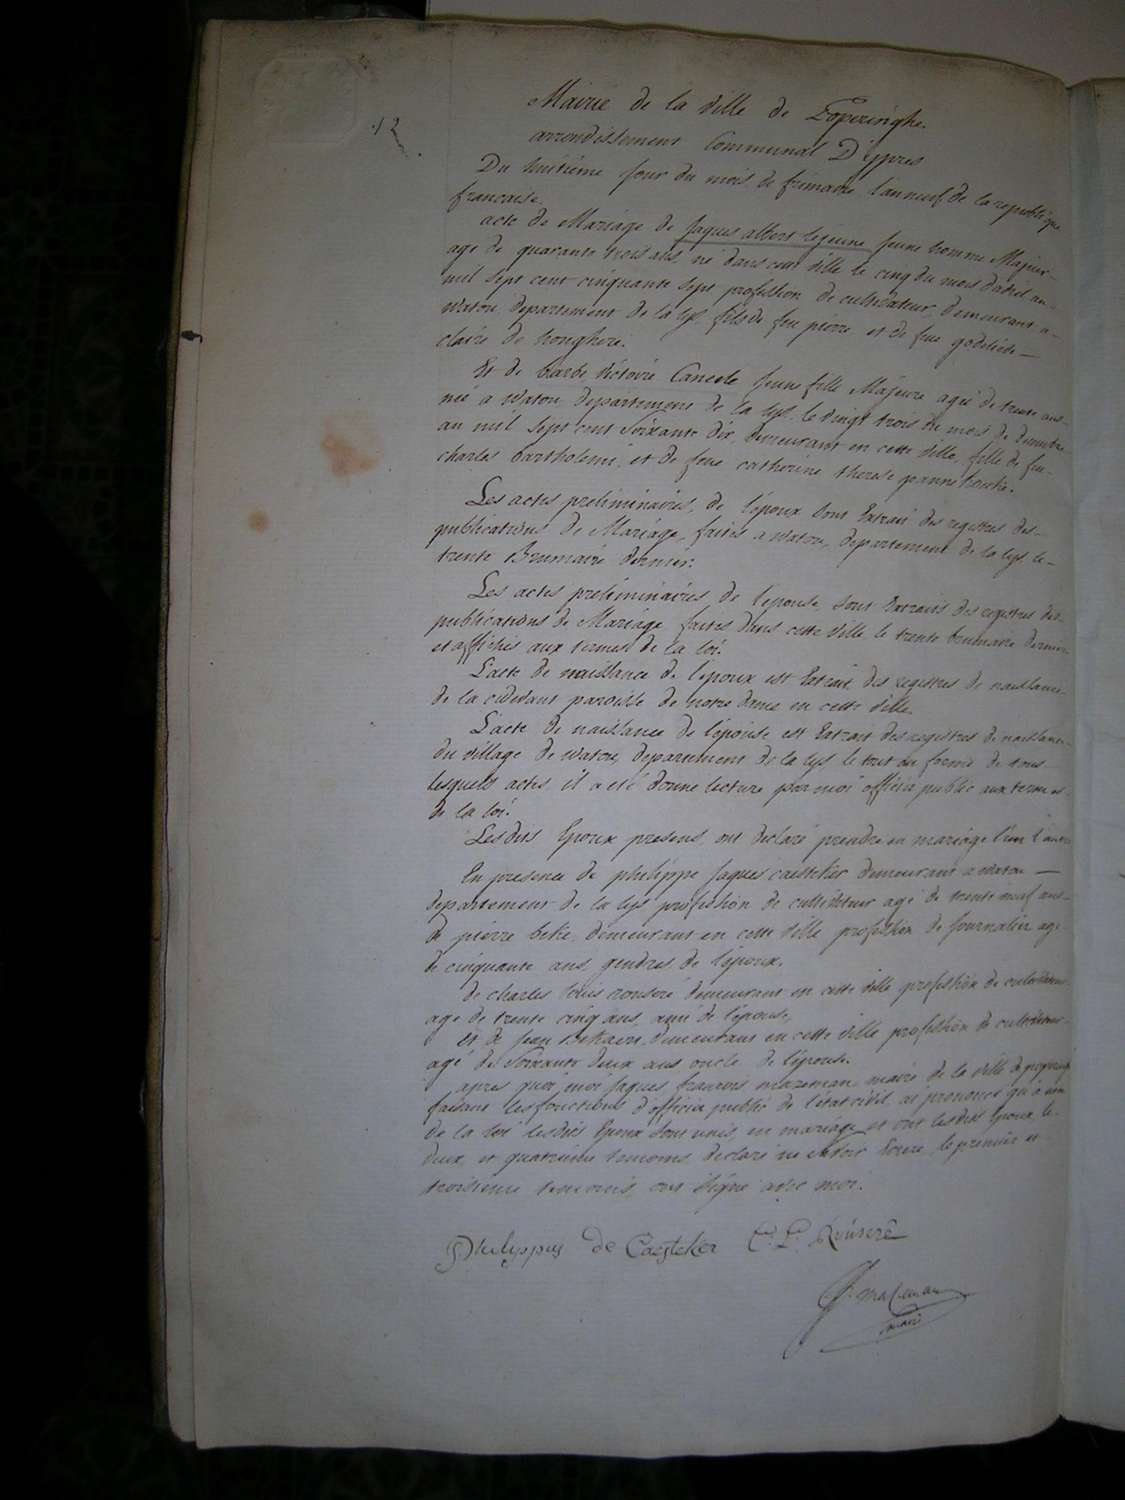 12
Mairie de la ville de Poperinghe.
arrondissement Communal D'ÿpres
Du huitieme Jour du mois de frimaire l'an neuf de la republique
francaise.
acte de Mariage de Jaques albert lejeune Jeune homme Majeur
agé de quarante trois ans, né dans cette ville le cinq du mois d'avril an
mil sept cent cinquante sept profession de cultivateur, demeurant a
Watou, departement de la lys, fils de feu pierre et de feue godeliede
claire de honghere.
Et de barbe victoire Caneele Jeune fille Majeure agée de trente ans
née a Watou departement de la lys, le vingt trois du mois de
an mil sept cent Soixante dix, demeurant en cette ville, fille de feu
charles bartholemi, et de feue catherine therese
Les actes preliminaires, de l'époux Sont Extrait des registres des
publications de Mariage, faites a watou, departement de la lys le
trente Brumaire dernier.
Les actes preliminaires de l'epouse, Sont Extraits des registres des
publications de Mariage, faites dans cette ville le trente brumaire dernier
et affichés aux termes de la loi.
L'acte de naissance de l'époux est Extrait des registres de naissance
de la cidevant paroisse de notre dame en cette ville.
L'acte de naissance de l'épouse est Extrait des registres de naissance
du village de watou, departement de la lys le tout en forme de tous
lesquels actes, il a eté donne lecture par moi officier public aux termes
de la loi.
Lesdits Epoux presens, ont declaré prendre en mariage l'un l'autre
En presence de philippe Jaques caesteker demeurant a watou
departement de la lys profession de cultivateur agé de trente neuf ans
de pierre beke, demeurant en cette ville profession de Journalier agé
de cinquante ans, gendres de l'époux.
de charles louis rouseré demeurant en cette ville profession de cultivateur
agé de trente cinq ans, ami de l'épouse,
et de Jean demeurant en cette ville profession de cultivateur
agé de Soixante deux ans oncle de l'épouse.
apres quoi, moi Jaques francois mazeman maire de la ville de poperinghe
faisant les fonctions d'officier public de l'etat civil, ai prononcé qu'à nom
de la loi lesdits Epoux Sont unis, en mariage et ont lesdits Epoux, le
deux, et quatrieme temoins, declaré ne Savoir Ecrire, le premier et
troisieme temoins, ont Signé avec moi.
Philippus de Caesteker C. L. Rouseré
J. mazeman
maire